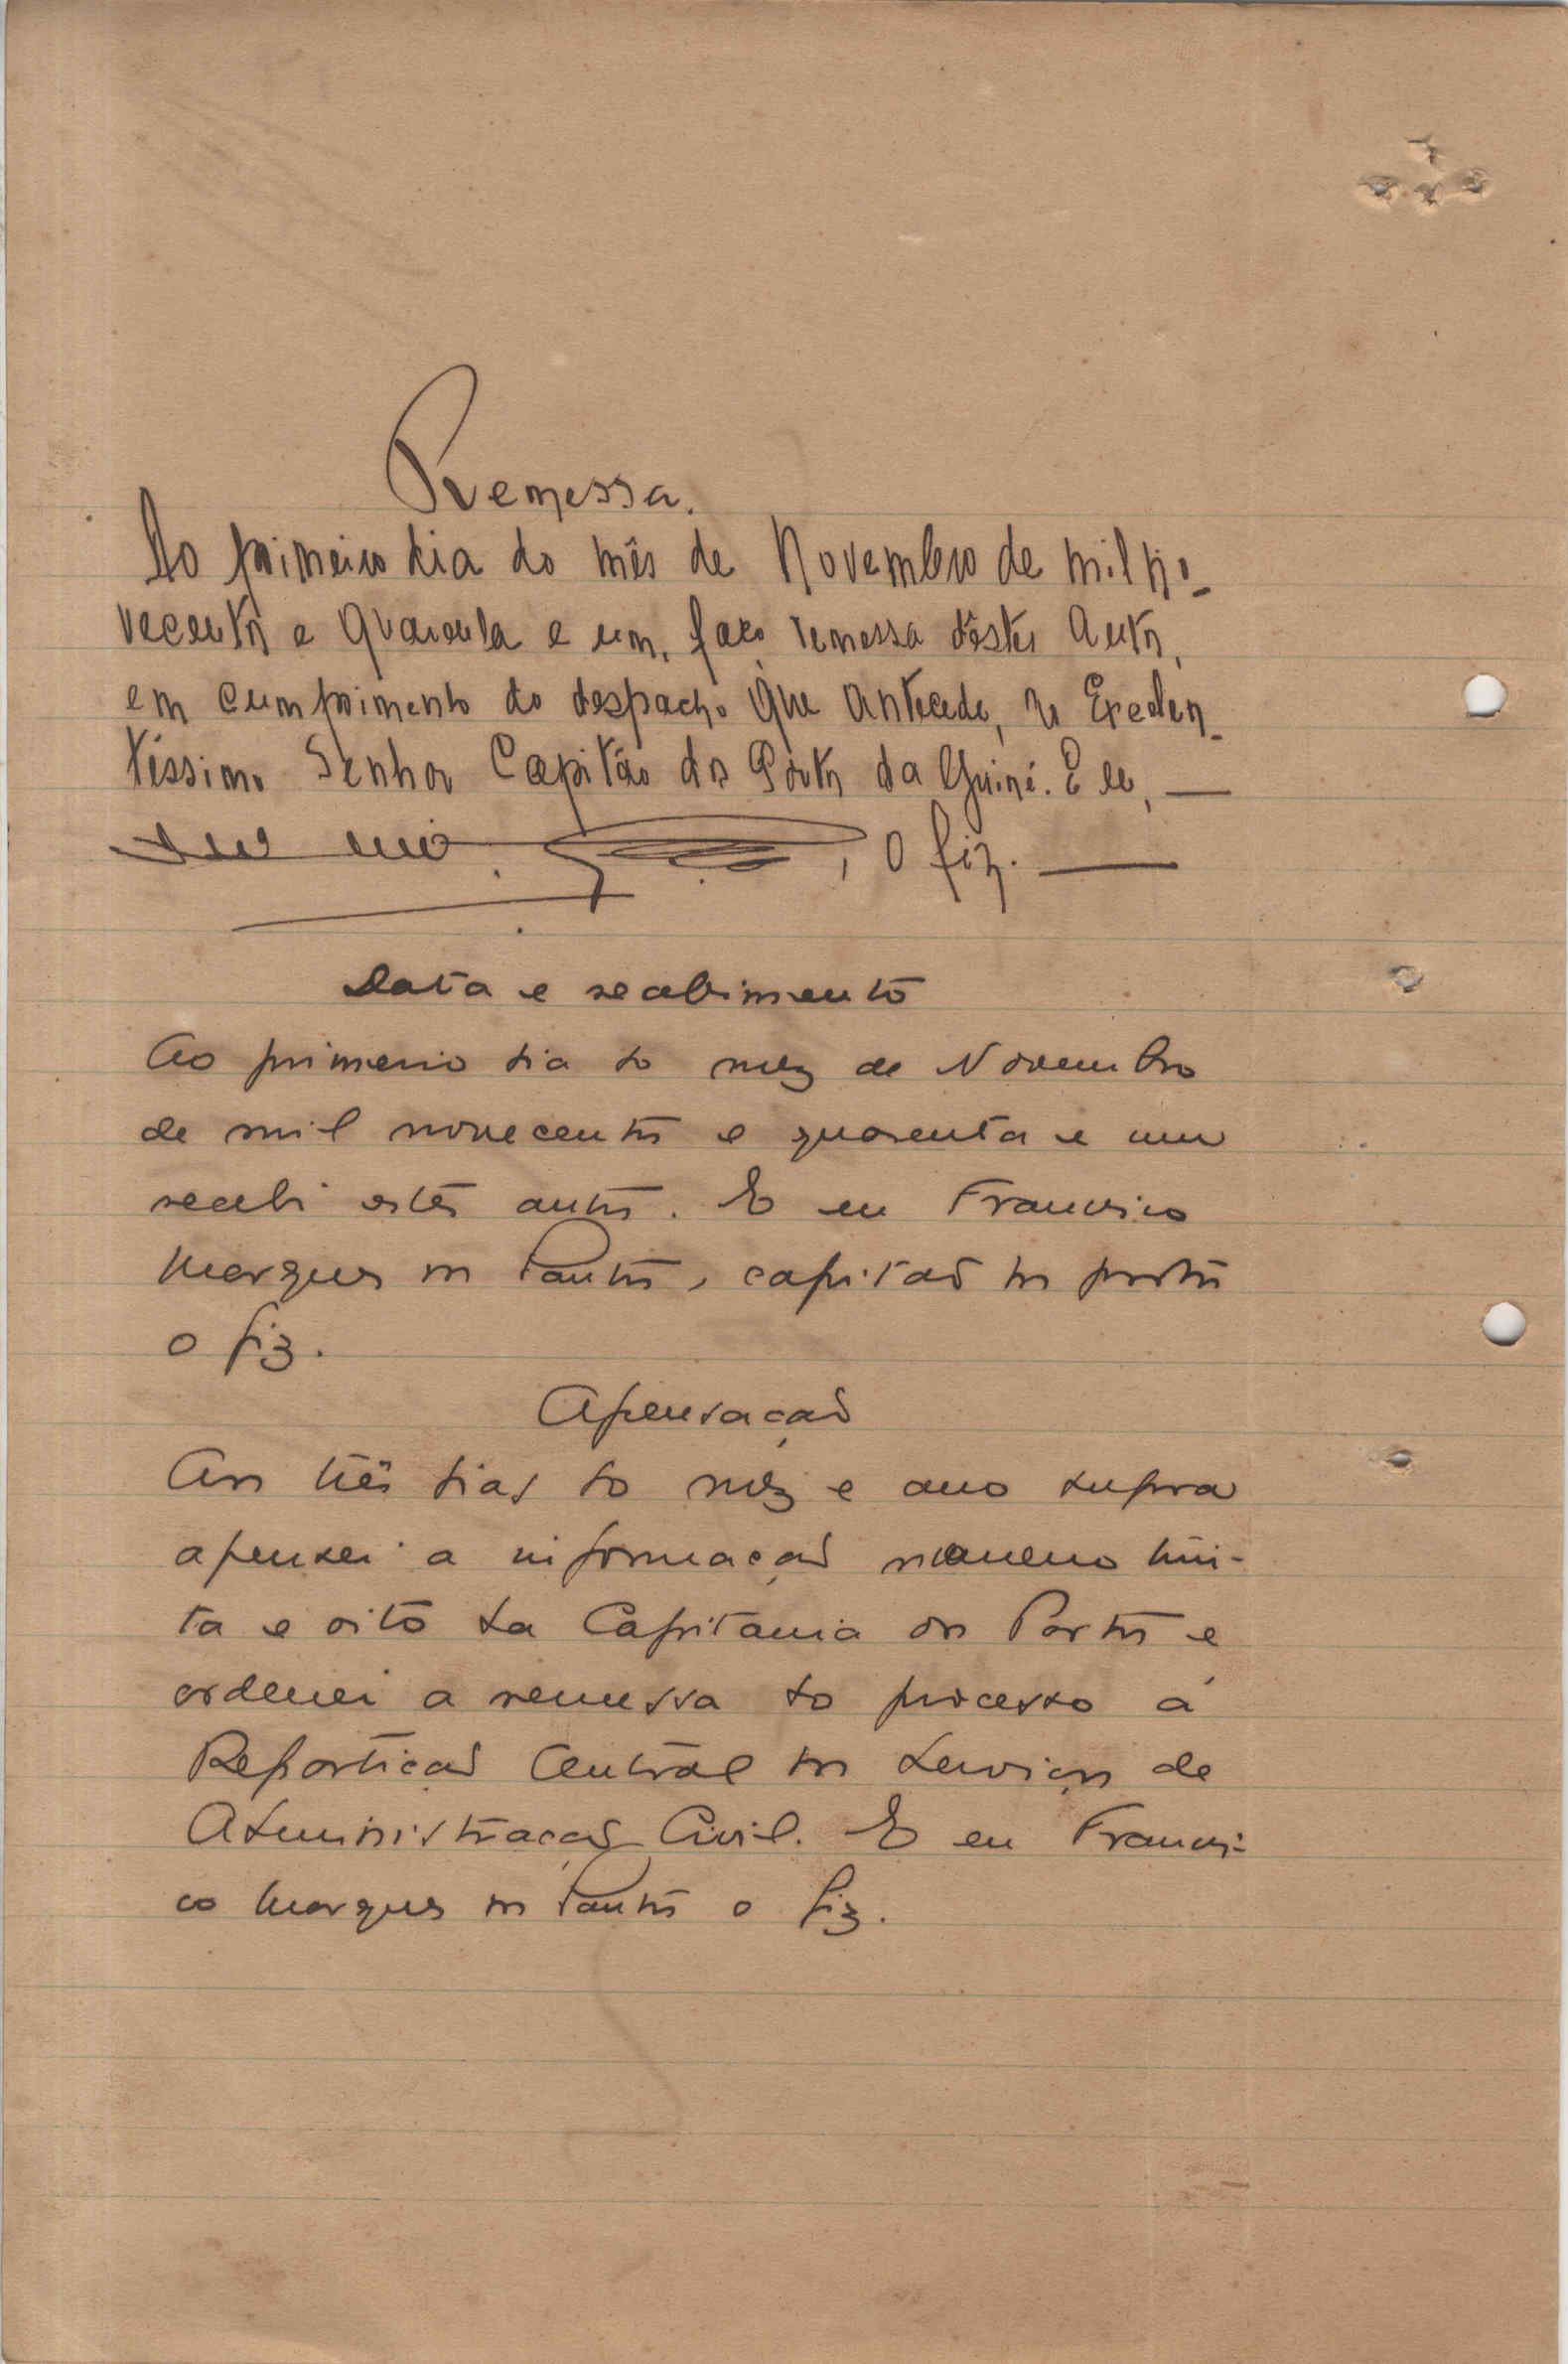 Remessa.
Ao primeiro dia do mês de Novembro de mil no-
vecentos e quarenta e um, faço remessa dêstes autos,
em cumprimento do despacho que antecede, ao Excelen-
tíssimo Senhor Capitão dos Portos da Guiné. E eu, —
, o fiz. —
Data e recebimento
Ao primeiro dia do mez de Novembro
de mil novecentos e quarenta e um
recebi estes autos. E eu Francisco
Marques dos Santos, capitão dos portos
o fiz.
Apensação
Aos três dias do mêz e ano supra
apensei a informação numero trin-
ta e oito da Capitania dos Portos e
ordenei a remessa do processo á
Repartição Central dos Serviços de
Administração Civil. E eu Francis-
co Marques dos Santos o fiz.